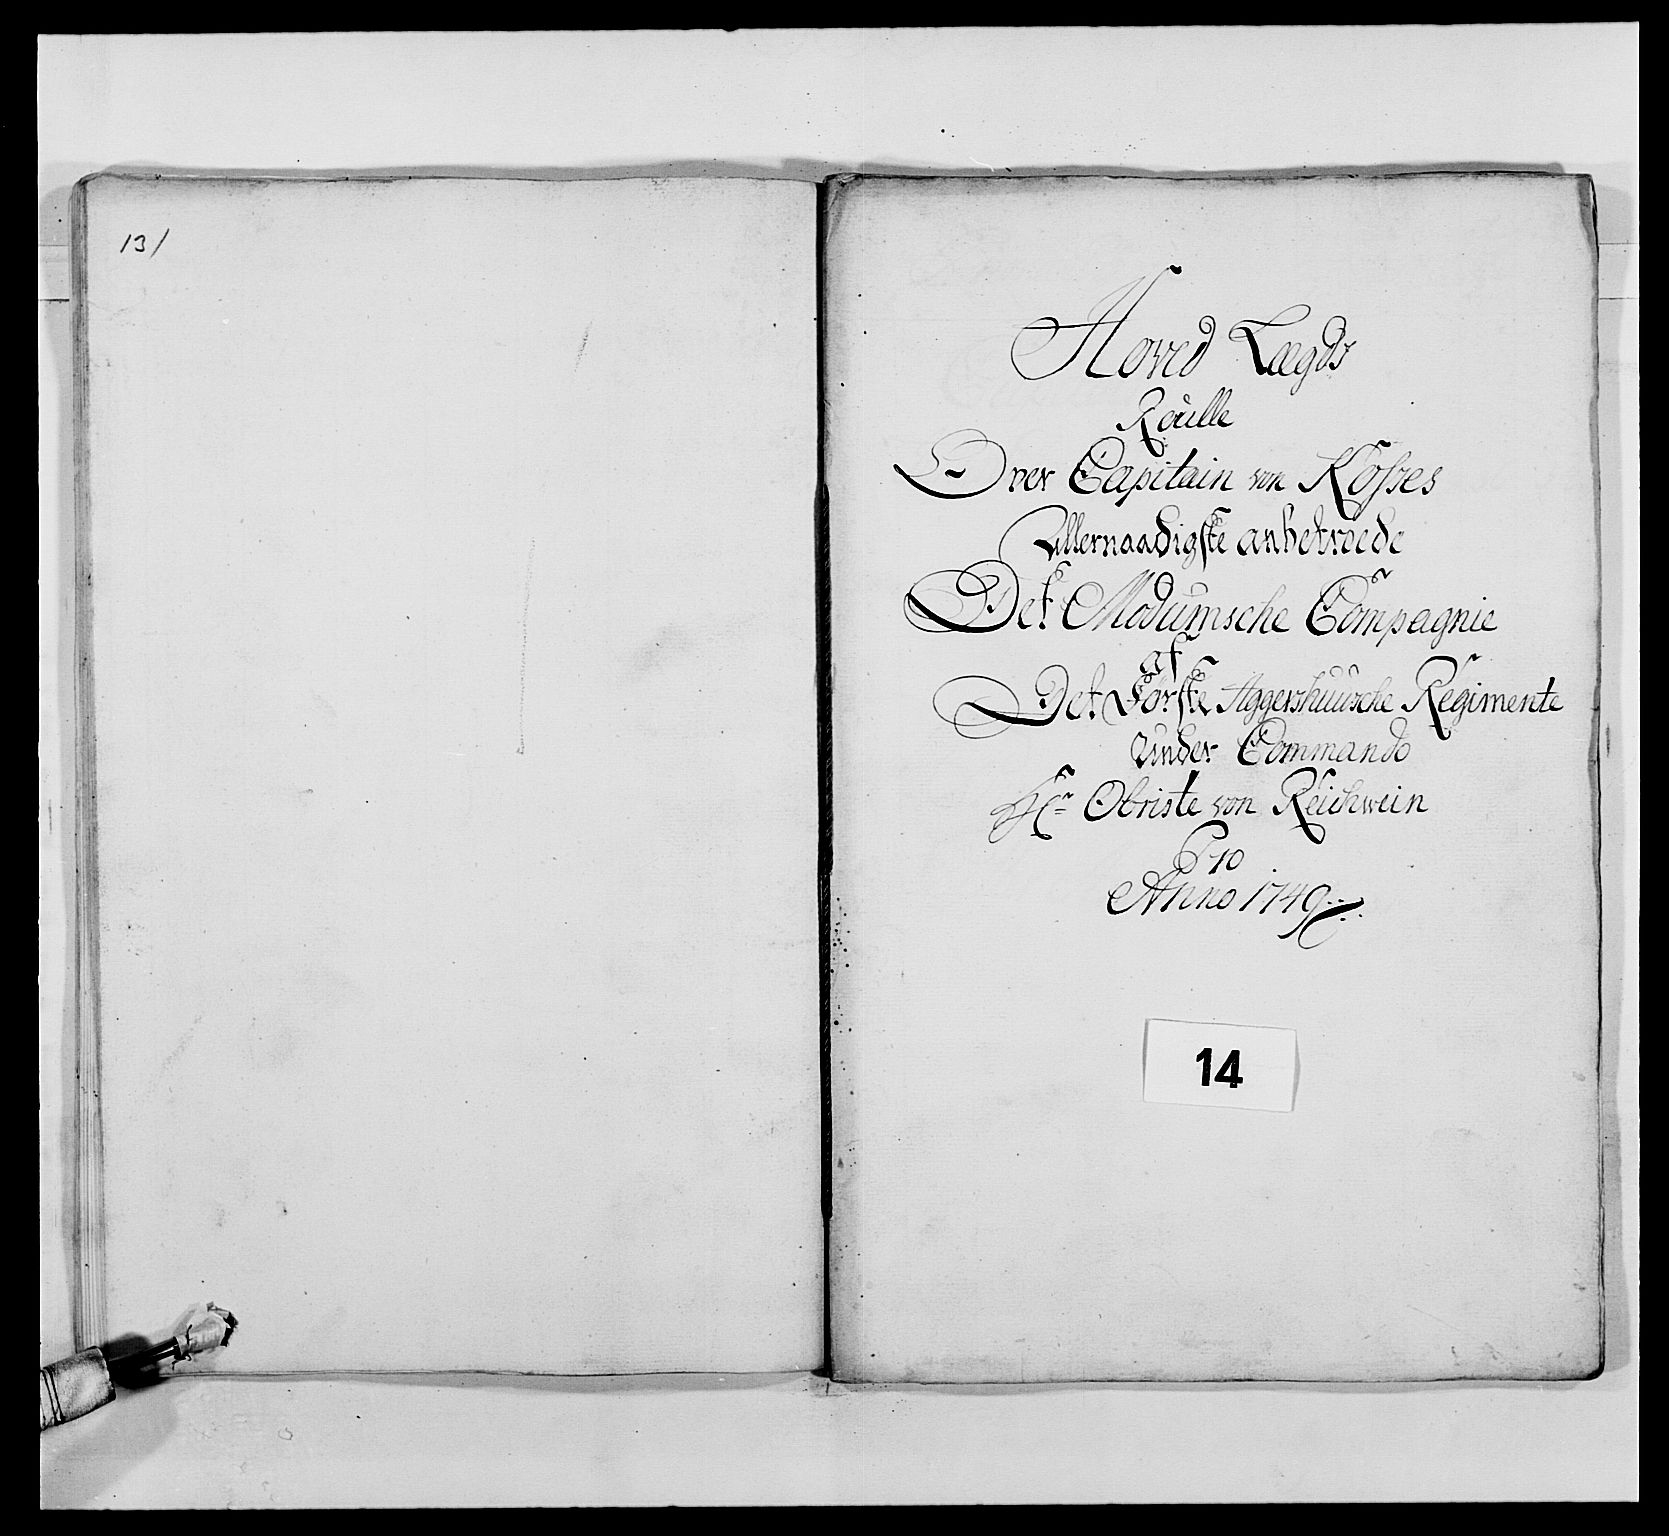 13/
Hoved Lægds
Roulle
Over Capitain von
Allernaadigste anbetroede
Det Modumsche Compagnie
af
Det Förste Aggershuusche Regimente
Under Commando
Hr Obriste von Reichwein
Pro
Anno 1749
14